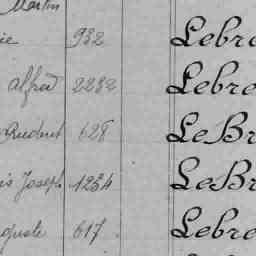 Martin
ie 932 Lebre
alfred 2282 Lebre
Prudent 628 LeBr
is Joseph 1234 LeBr
guste 617 Lebre